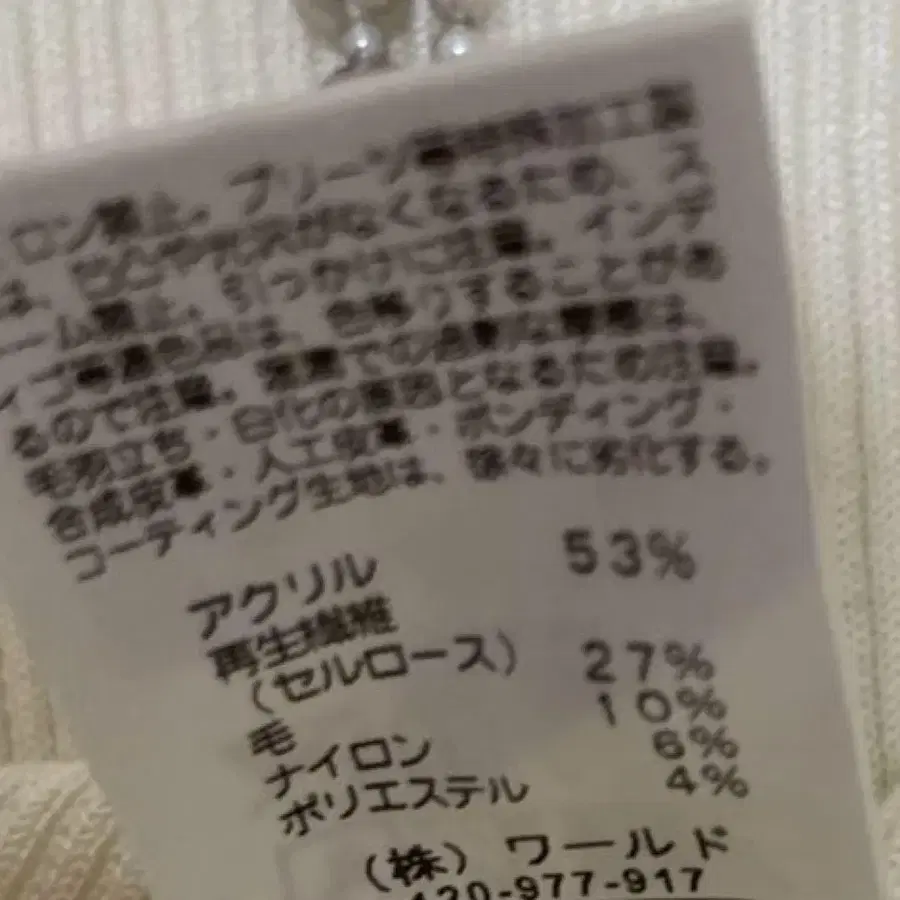 ロン禁止。プリーツ等特殊加工製
は、凹凸や光沢がなくなるため、ス
ーム禁止。引っかけに注意。インデ
ィゴ等濃色品は、色移りすることがあ
るので注意。洗濯での過剰な摩擦は、
毛羽立ち・白化の原因となるため注意。
合成皮革・人工皮革・ボンディング・
コーティング生地は、徐々に劣化する。
アクリル 53%
再生繊維
(セルロース) 27%
毛 10%
ナイロン 6%
ポリエステル 4%
(株)ワールド
120-977-917